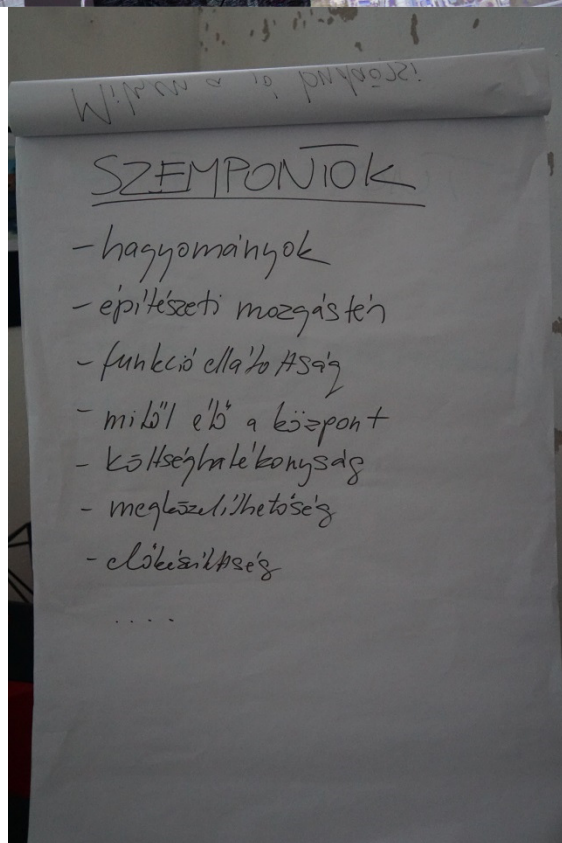 Mitől a jó budaörsi
SZEMPONTOK
- hagyományok
- építészeti mozgástér
- funkció ellátottság
- mitől élő a központ
- költséghatékonyság
- megközelíthetőség
- előkészítettség
....